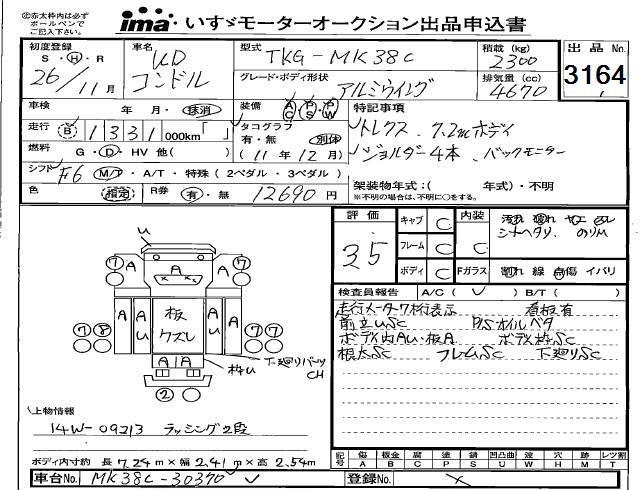 ㊟赤太枠内は必ず
ボールペンで
ご記入下さい。
ima いすゞモーターオークション出品申込書
初度登録
S・H・R
26/11月
車名
UD
コンドル
型式
TKG-MK38C
積載(kg)
2300
グレード・ボディ形状
アルミウイング
排気量(cc)
4670
出品No.
3164
車検 年 月・抹消
装備 AC PS PW
特記事項
走行 B 1331 000km「 」
タコグラフ
有・無 別体
(11年12月)
トレクス 7.2mボディ
ジョルダー4本、バックモニター
燃料 G・D・HV 他( )
シフト F6 M/T・A/T・特殊(2ペダル・3ペダル)
架装物年式:( 年式)・不明
※不明の場合は、不明に○をする。
色 指定 R券 有・無 12690円
評価
3.5
キャブ C
フレーム C
ボディ C
内装
C
Fガラス
シートヘタリ、
割れ 線 点傷 イバリ
検査員報告 A/C( ✓ ) B/T( )
走行メーター7桁表示 看板有
前立USC P/Sオイルベタ
ボディ内AU・板A ボディ枠SC
根太SC フレームSC 下廻りSC
U
⑦ A ⑦
A
⑦⑧ A U 板 A A ⑦⑦
ズレ
A A
枠U
下廻りパーツ
CH
②
上物情報
14W-09213 ラッシング2段
ボディ内寸約 長 7.24m×幅 2.41m×高 2.54m
記号 傷 板金 腐 塗 錆 凹凸曲 波 穴 跡 レツ割
A B C P S U W H M T
車台No. MK38C-30370
登録No.